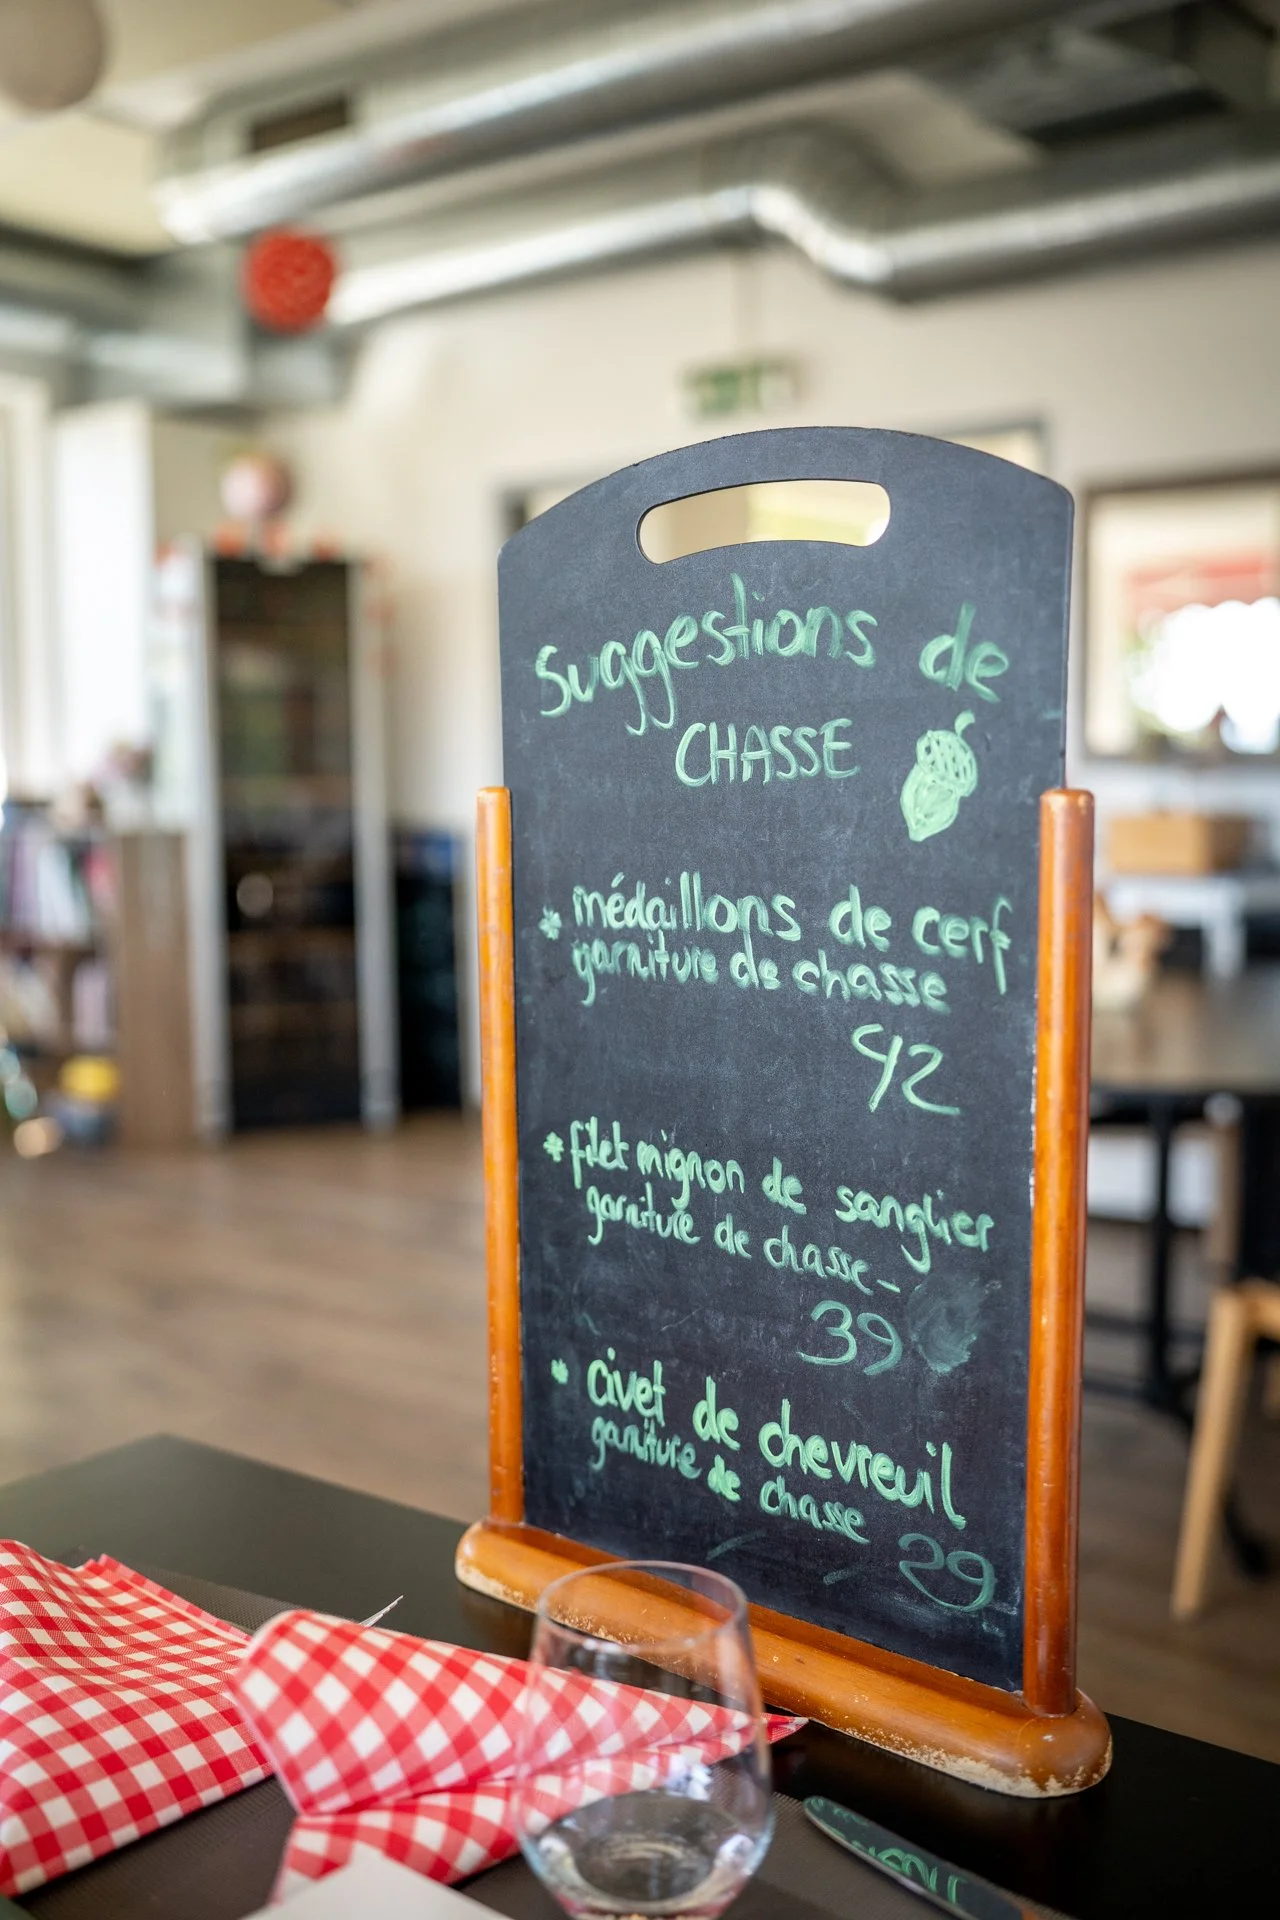 Suggestions de
CHASSE
* médaillons de cerf
garniture de chasse
42
* filet mignon de sanglier
garniture de chasse -
39
* civet de chevreuil
garniture de chasse
29